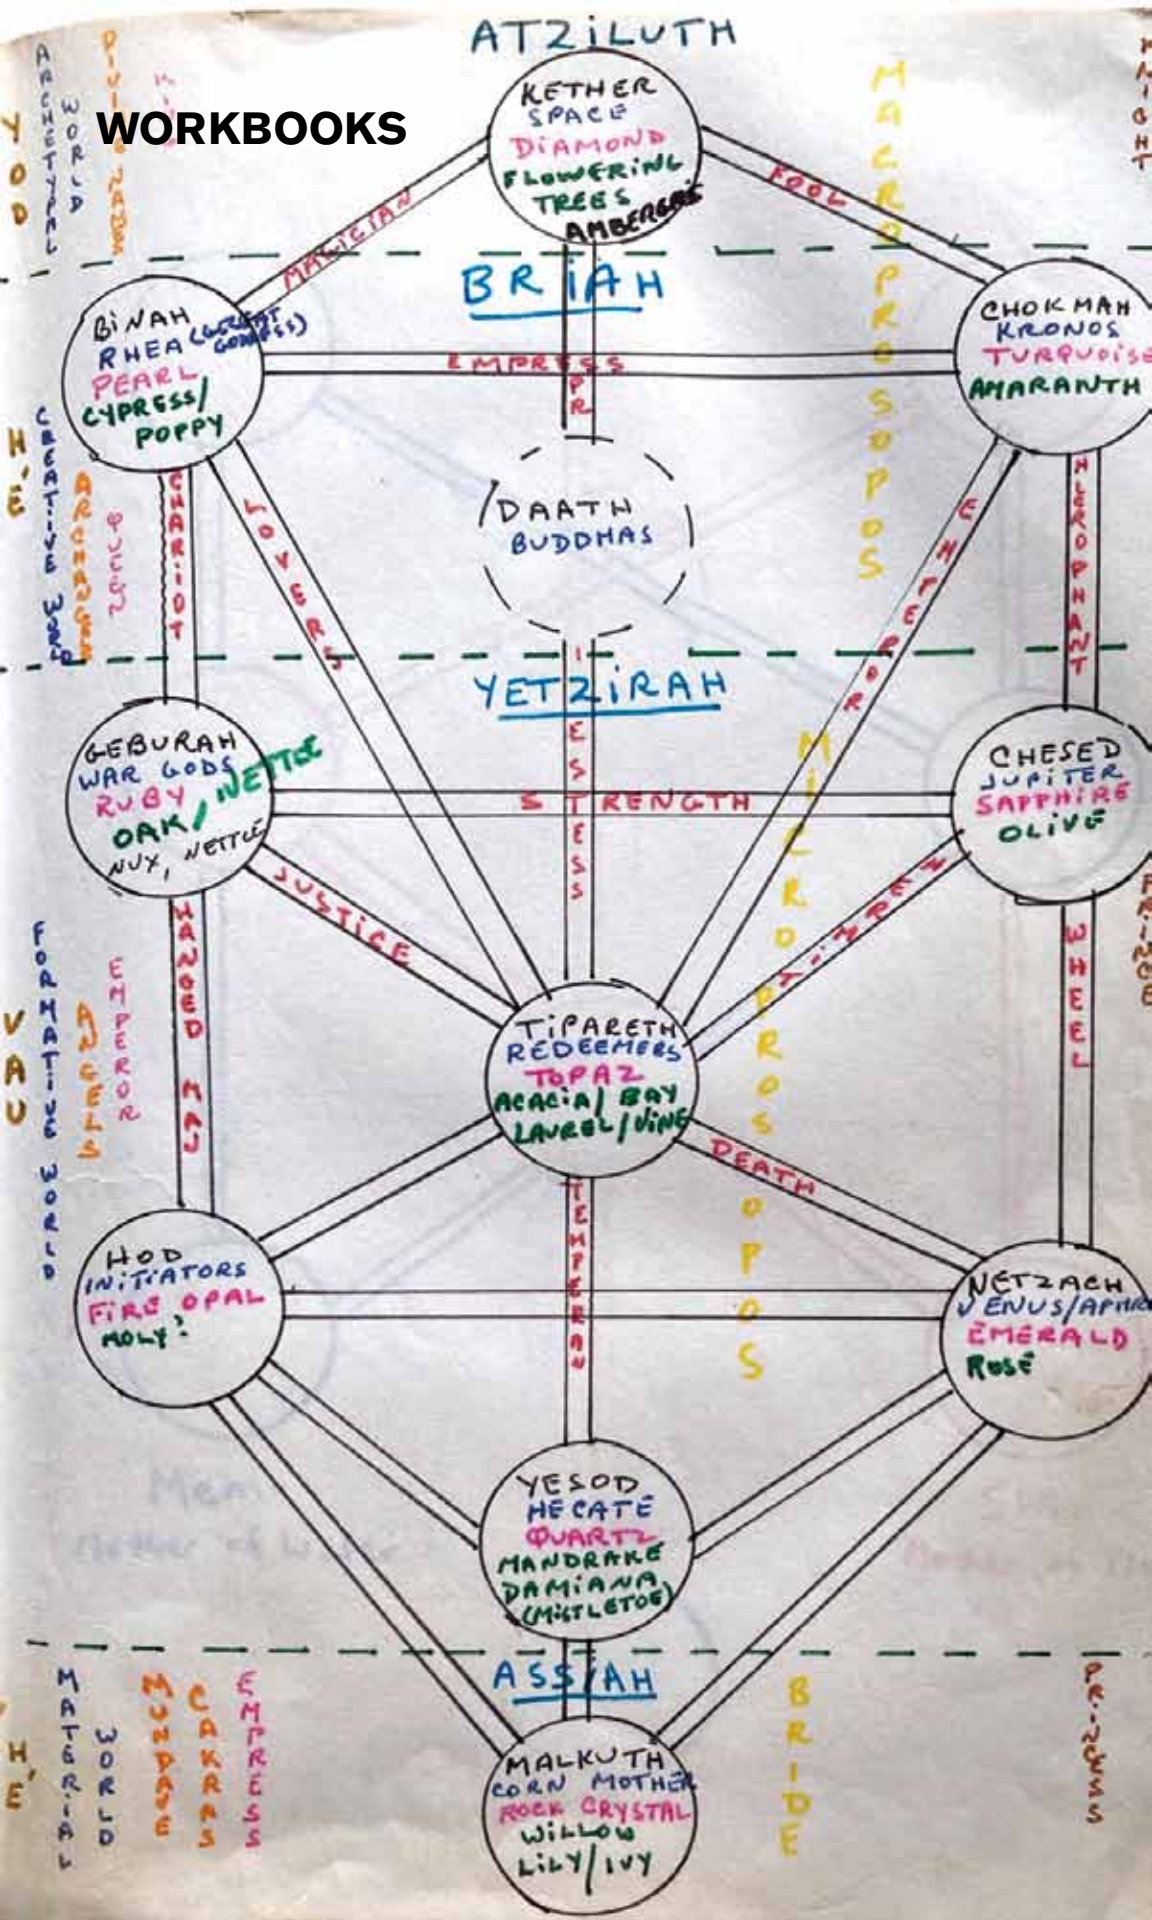 ATZiLUTH
WORKBOOKS
YOD
ARCHETYPAL
WORLD
KETHER
SPACE
DiAMOND
FLOWERiNG
TREES
AMBERGRiS
MACROPROSOPOS
MAGICIAN
FOOL
BRiAH
BiNAH
RHEA (GREAT
GODDESS)
PEARL
CYPRESS/
POPPY
CHOKMAH
KRONOS
TURQUOiSE
AMARANTH
EMPRESS
PRIESTESS
H'E
CREATIVE WORLD
QUEEN
CHARIOT
LOVERS
DAATH
BUDDHAS
EMPEROR
HIEROPHANT
YETZiRAH
GEBURAH
WAR GODS
RUBY
OAK/ NETTLE
NUX, NETTLE
CHESED
JUPiTER
SAPPHiRE
OLiVE
STRENGTH
MiCROPROSOPOS
JUSTICE
HERMiT
HANGED MAN
WHEEL
VAU
FORMATIVE WORLD
ANGELS
EMPEROR
PRINCE
TiPARETH
REDEEMERS
TOPAZ
ACACiA/ BAY
LAUREL/ViNE
DEATH
TEMPERAN
HOD
iNiTiATORS
FiRE OPAL
MOLY?
NETZACH
VENUS/APHRO
EMERALD
ROSE
YESOD
HECATE
QUARTZ
MANDRAKE
DAMiANA
(MiSTLETOE)
ASSiAH
H'E
MATERIAL
WORLD
MUNDANE
CAKRAS
EMPRESS
BRIDE
PRINCESS
MALKUTH
CORN MOTHER
ROCK CRYSTAL
WiLLOW
LiLY/IVY